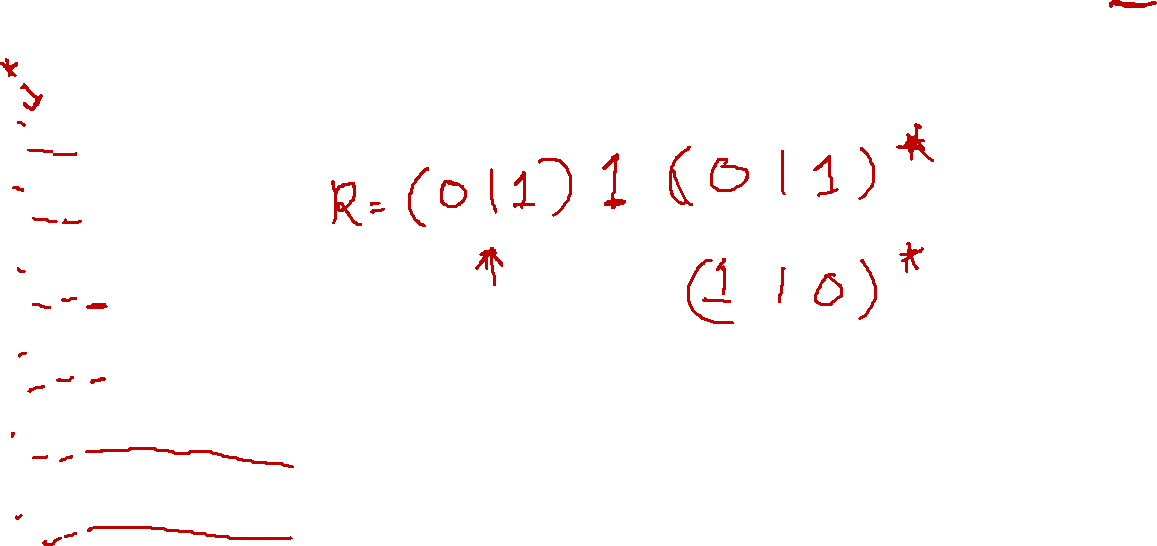 R = (0|1) 1 (0|1)*
(1|0)*